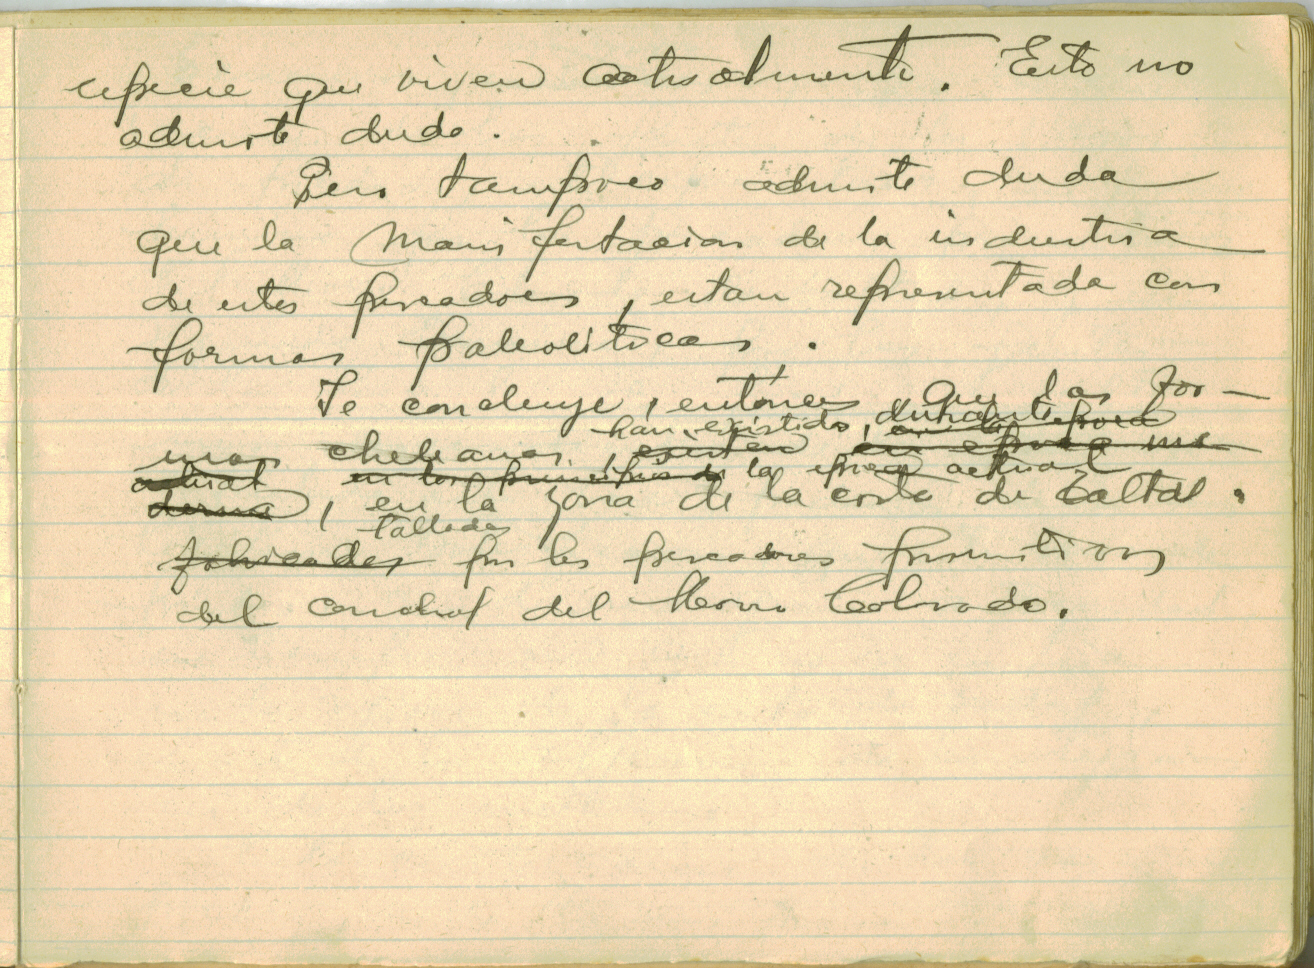 especie que viven actualmente. Esto no
admite duda.
Pero tampoco admite duda
que la Manifestacion de la industria
de estos pescadores, estan representada con
formas paleolíticas.
Se concluye, entónces que las for-
mas cheleanas, han existido, durante
existen en epoca mo-
actual en los principios de la epoca actual
derna, en la zona de la costa de Taltal.
talladas
fabricadas por los pescadores primitivos
del conchal del Morro Colorado.